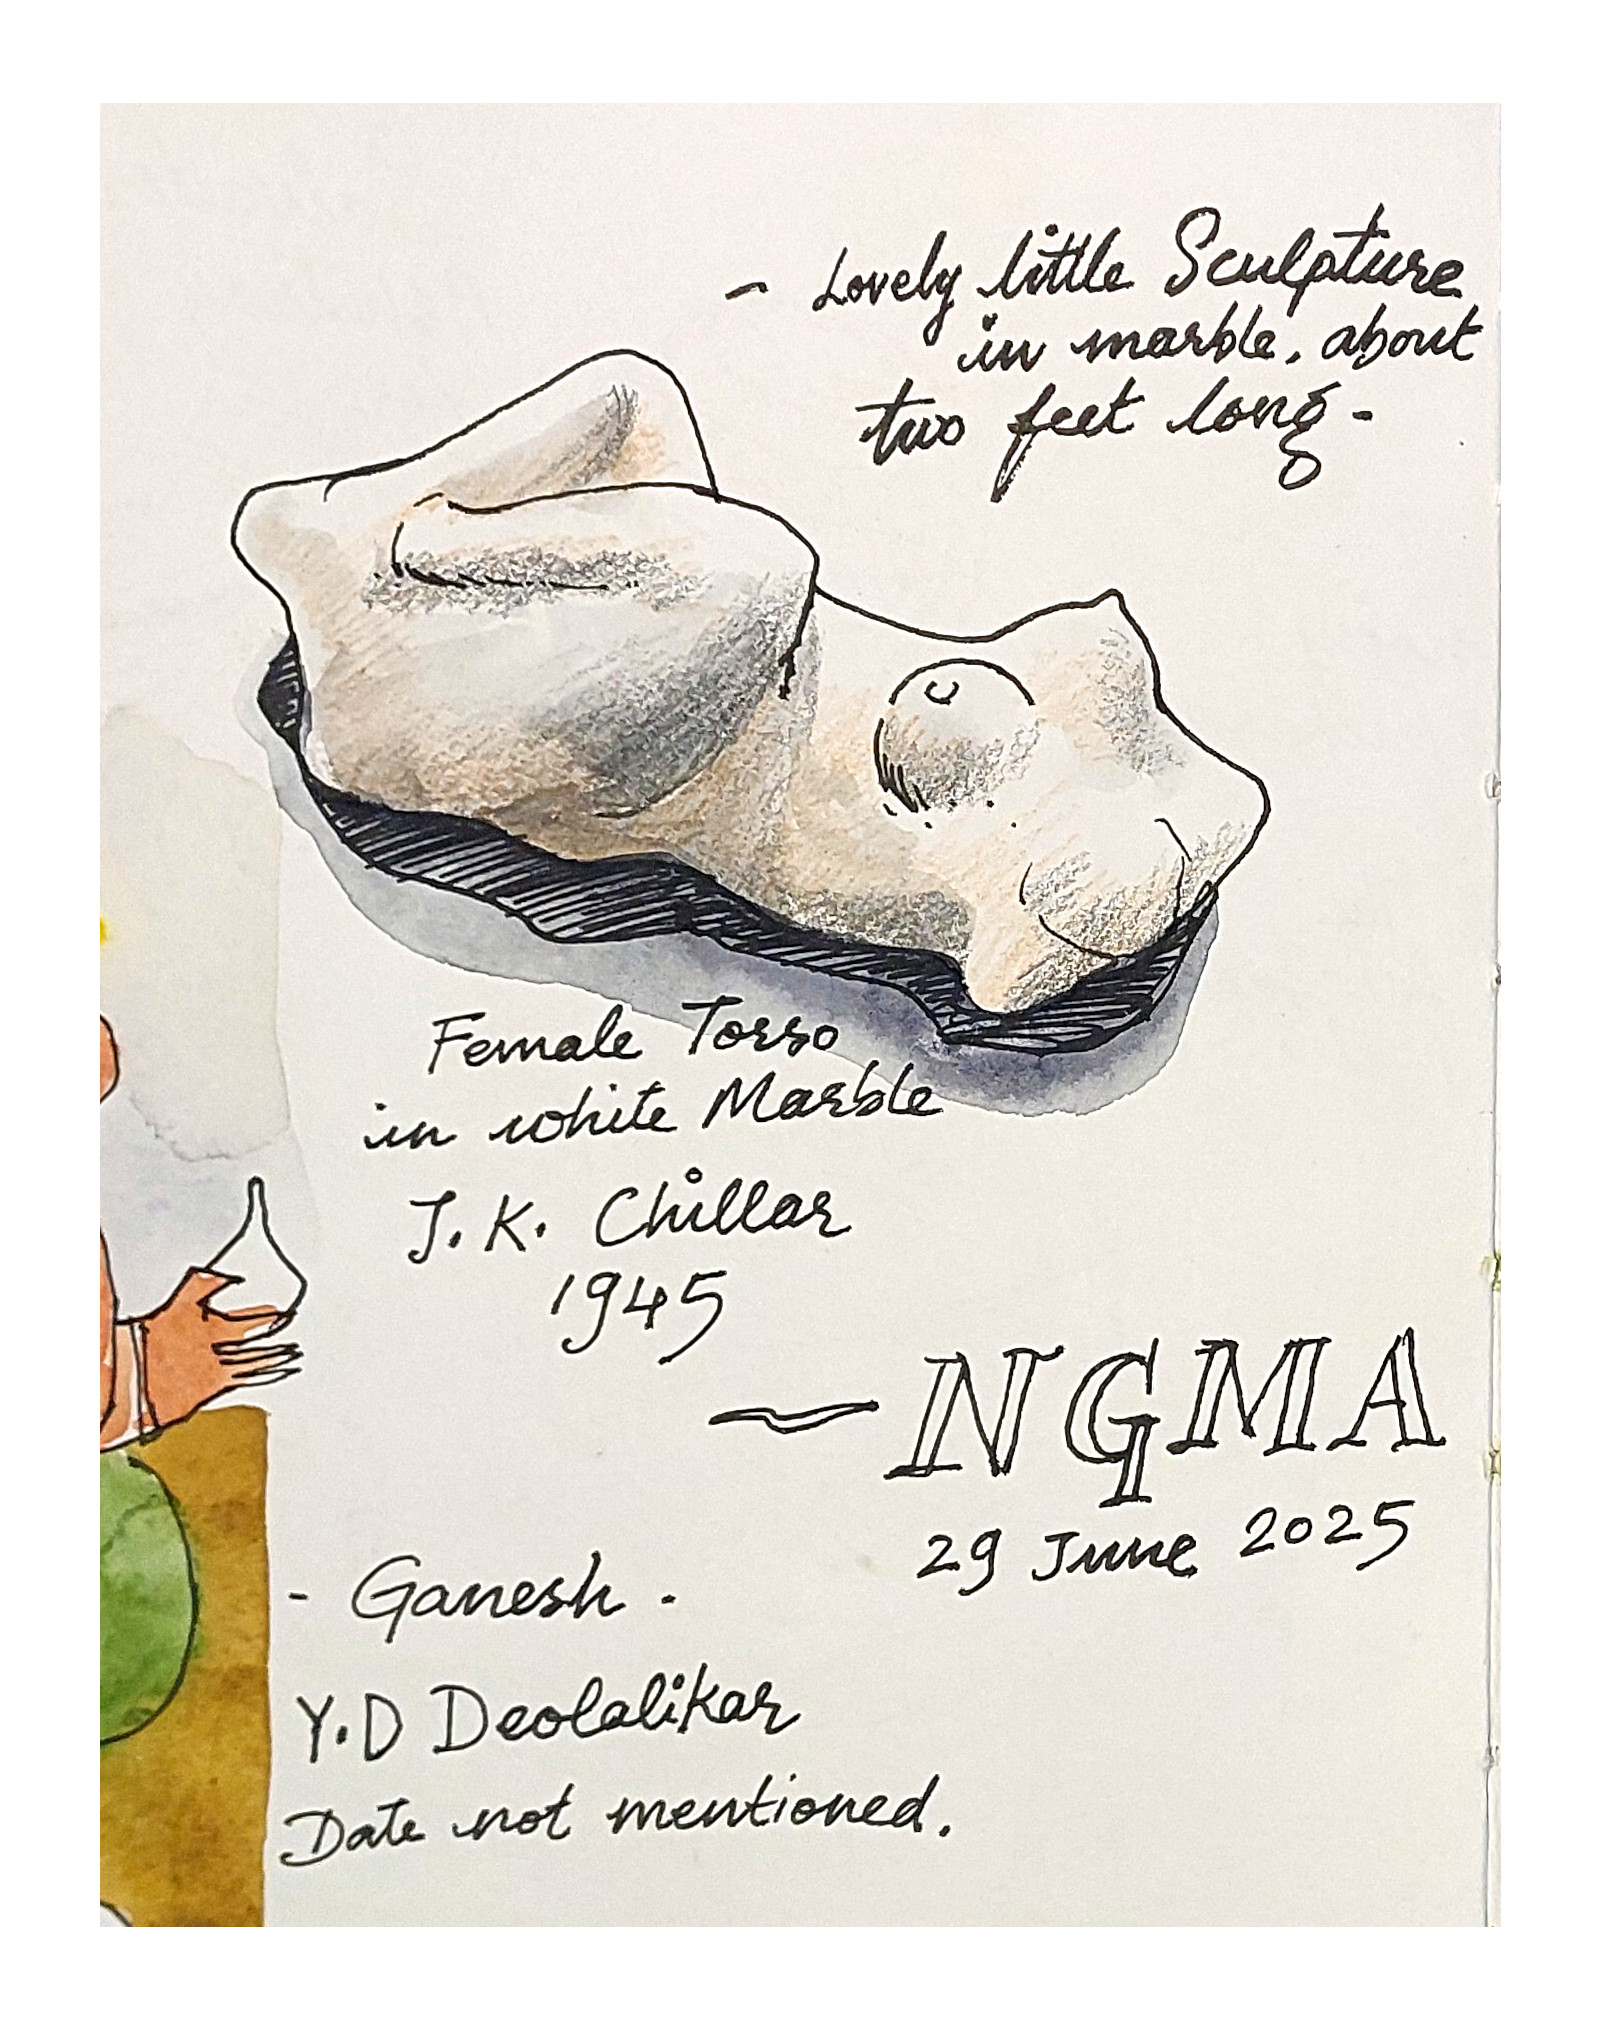 - Lovely little Sculpture
in marble, about
two feet long -
Female Torso
in white Marble
J. K. Chillar
1945
- NGMA
29 June 2025
- Ganesh .
Y.D Deolalikar
Date not mentioned.